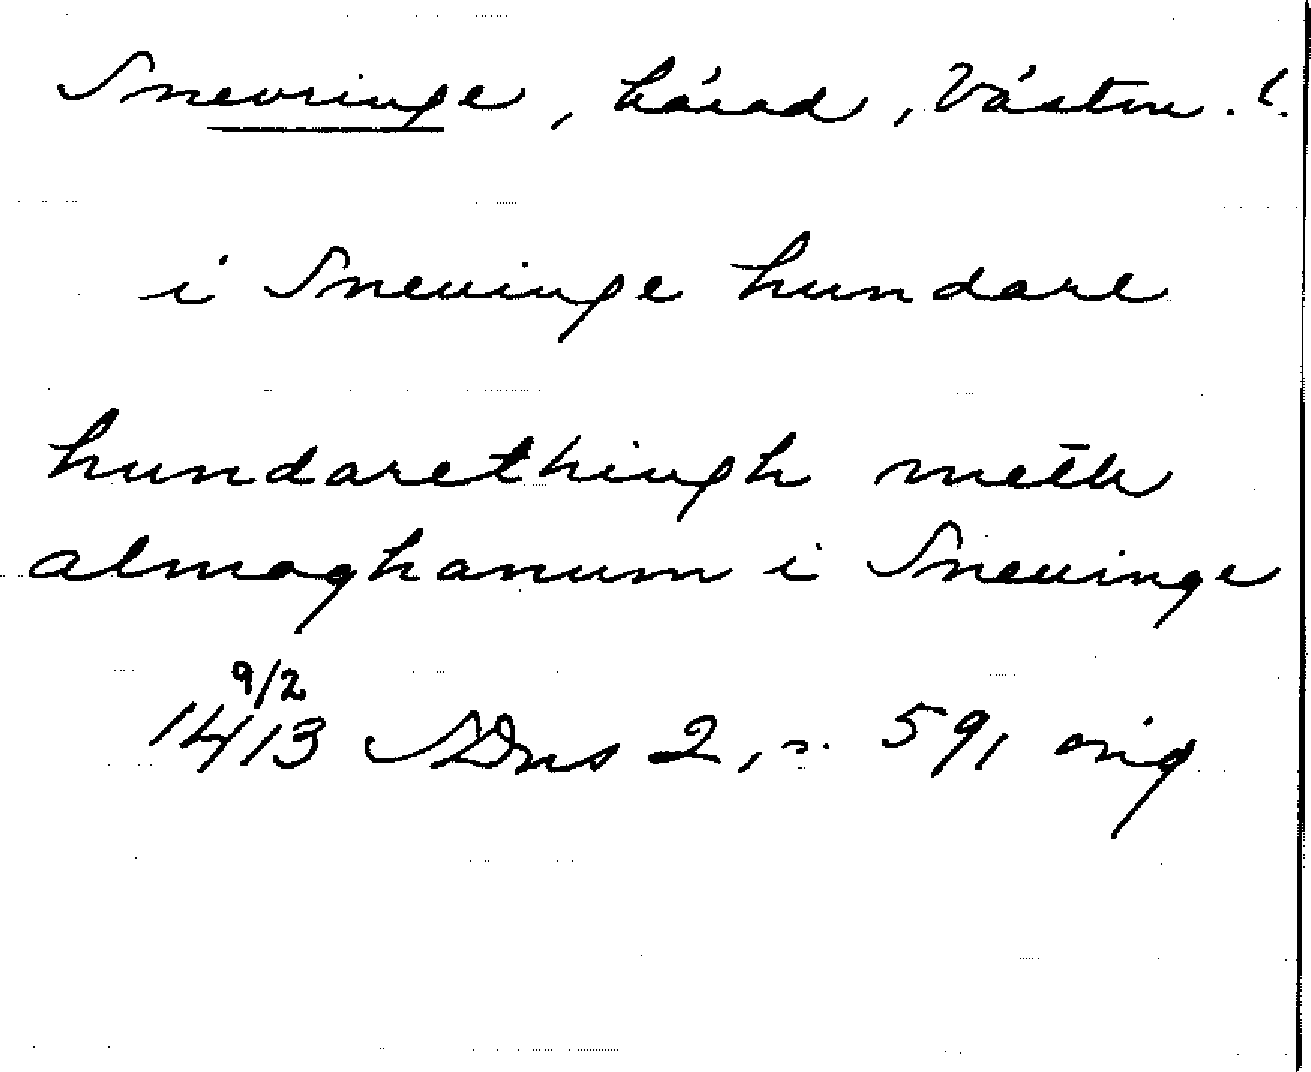 Snevringe, härad, Västm. l.
i Sneuinge hundare
hundarethingh meth
almoghanum i Sneuinge
9/2
1413 SDns 2, s. 591 orig